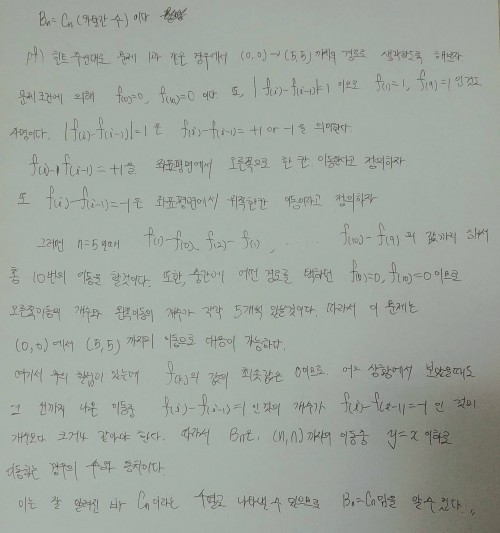 Bn = Cn (카탈란 수) 이다
pf) 힌트 주어진대로 문제 1과 같은 경우에서 (0,0)→(5,5) 까지의 경로로 생각하도록 해보자
문제조건에 의해 f(0)=0, f(10)=0 이다 또, |f(i)-f(i-1)|=1 이므로 f(1)=1, f(9)=1 인것도
자명이다. |f(i)-f(i-1)|=1 은 f(i)-f(i-1)= +1 or -1 을 의미한다.
f(i)-f(i-1)=+1을 좌표평면에서 오른쪽으로 한 칸 이동한다고 정의하자
또 f(i)-f(i-1)=-1은 좌표평면에서 위쪽한칸 이동이라고 정의하자
그러면 n=5일때 f(1)-f(0), f(2)-f(1), ...... f(10)-f(9) 의 값까지 해서
총 10번의 이동을 할것이다. 또한, 중간에 어떤 경로를 택하던 f(0)=0, f(10)=0 이므로
오른쪽이동의 개수와 왼쪽이동의 개수가 각각 5개씩 있을것이다. 따라서 이 문제는
(0,0)에서 (5,5) 까지의 이동으로 대응이 가능하다.
여기서 주의 할점이 있는데 f(k)의 값의 최솟값은 0이므로. 어느 상황에서 보았을때도
그 전까지 나온 이동중 f(i)-f(i-1)=1 인것의 개수가 f(i)-f(i-1)=-1 인 것의
개수보다 크거나 같아야 한다. 따라서 Bn은, (n,n)까지의 이동중 y=x 이하로
이동하는 경우의 수와 동치이다.
이는 잘 알려진 바 Cn이라는 수열로 나타낼 수 있으므로 Bn=Cn임을 알 수 있다.